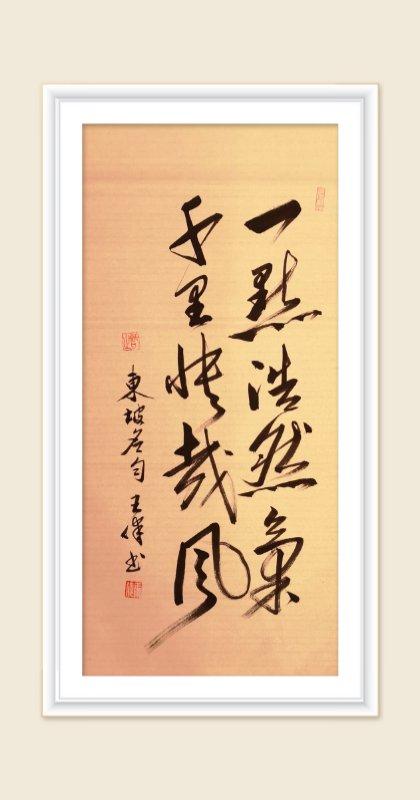 一點浩然氣
千里快哉風
東坡名句 王偉书